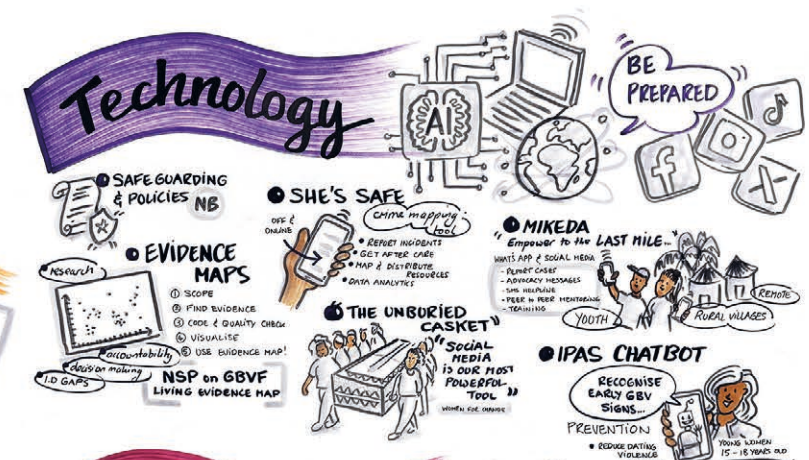 Technology
AI
BE
PREPARED
SAFEGUARDING
& POLICIES NB
EVIDENCE
MAPS
research
① SCOPE
② FIND EVIDENCE
③ CODE & QUALITY CHECK
④ VISUALISE
⑤ USE EVIDENCE MAP!
accountability
decision making
I.D GAPS
NSP on GBVF
LIVING EVIDENCE MAP
SHE'S SAFE
crime mapping
tool
OFF &
ONLINE
• REPORT INCIDENTS
• GET AFTER CARE
• MAP & DISTRIBUTE
RESOURCES
• DATA ANALYTICS
THE UNBURIED
CASKET"
"SOCIAL
MEDIA
IS OUR MOST
POWERFUL
TOOL"
WOMEN FOR CHANGE
MIKEDA
"Empower to the LAST MILE..."
WHAT'S APP & SOCIAL MEDIA
- REPORT CASES
- ADVOCACY MESSAGES
- SMS HELPLINE
- PEER to PEER MENTORING
- TRAINING
YOUTH
REMOTE
RURAL VILLAGES
IPAS CHATBOT
RECOGNISE
EARLY GBV
SIGNS...
PREVENTION
• REDUCE DATING
VIOLENCE
YOUNG WOMEN
15 - 18 YEARS OLD